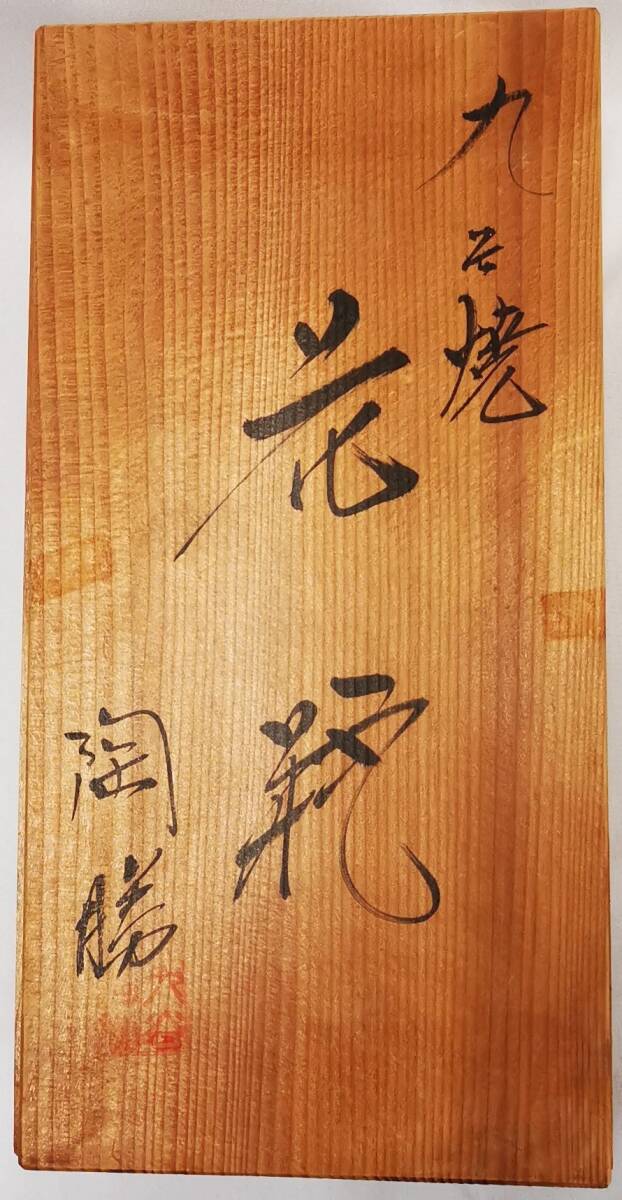 九谷焼
花瓶
陶勝